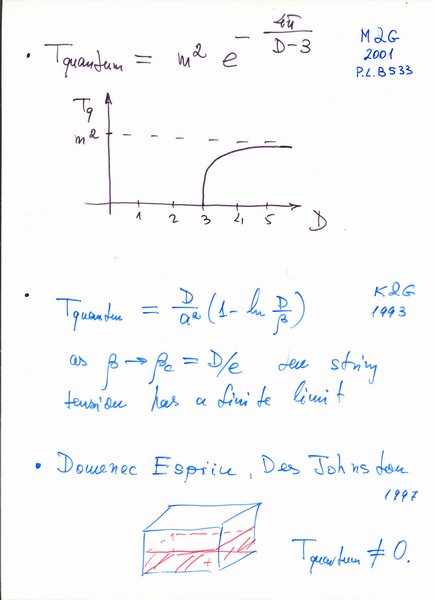 • Tquantum = m² e^{- 4π/(D-3)}
M2G
2001
P.L.B533
Tq
m²
1 2 3 4 5 D
• Tquantum = D/a² (1 - ln D/β)
K2G
1993
as β → βc = D/e the string
tension has a finite limit
• Domenec Espriu, Des Johnston
1997
- +
Tquantum ≠ 0.